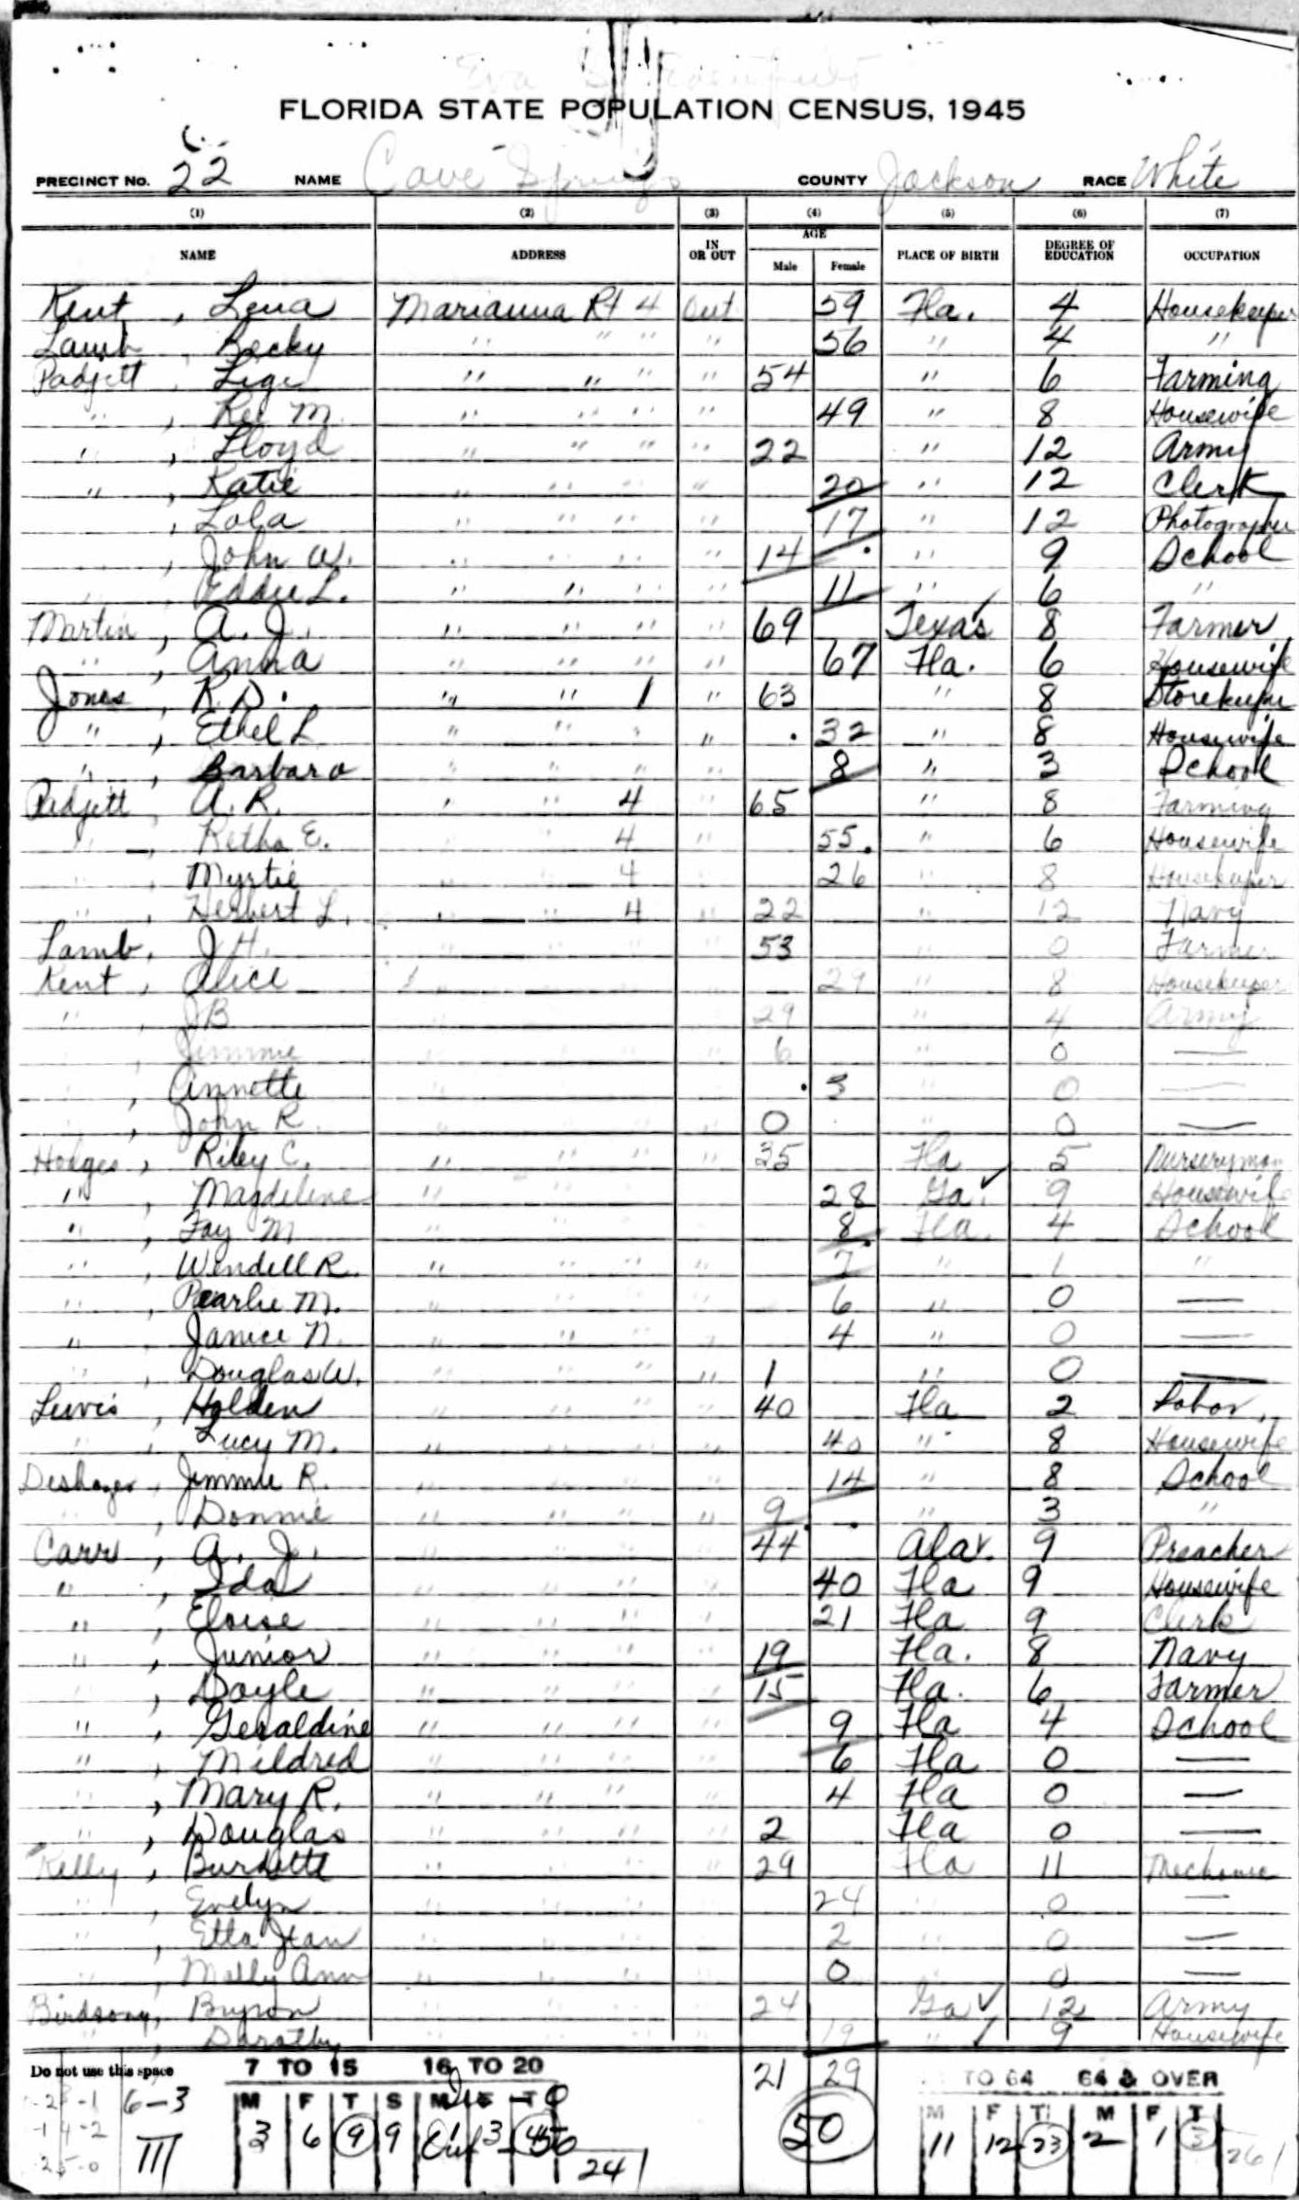 FLORIDA STATE POPULATION CENSUS, 1945
PRECINCT No. 22 NAME Cave Springs COUNTY Jackson RACE White
(1) (2) (3) (4) (5) (6) (7)
NAME ADDRESS IN OR OUT AGE Male Female PLACE OF BIRTH DEGREE OF EDUCATION OCCUPATION
Kent, Lena Marianna Rt 4 Out 59 Fla. 4 Housekeeper
Lamb, Becky " " " " 56 " 4 "
Padgett, Lige " " " 54 " 6 Farming
" , M. " " " " 49 " 8 Housewife
" , Lloyd " " " " 22 " 12 Army
" , Katie " " " " 20 " 12 Clerk
, Lola " " " " 17 " 12 Photographer
, John W. " " " " 14 " 9 School
, Eddie L. " " " " 11 " 6 "
Martin, A. J. " " " " 69 Texas 8 Farmer
" , Anna " " " " 67 Fla. 6 Housewife
Jones, R. D. " " 1 " 63 " 8 Storekeeper
" , Ethel L " " " " 32 " 8 Housewife
" , Barbara " " " " 8 " 3 School
Padgett, A. R. " " 4 " 65 " 8 Farming
" , Retha E. " " 4 " 55 " 6 Housewife
" , Myrtie " " 4 " 26 " 8 Housekeeper
" , Herbert L. " " 4 " 22 " 12 Navy
Lamb, J H. " " " " 53 " 0 Farmer
Kent, Alice " " " " 29 " 8 Housekeeper
" , JB " " " " 29 " 4 Army
Jimmie " " " " 6 " 0 —
, Annette " " " " 3 " 0 —
, John R. " " " " 0 " 0 —
Hodges, Riley C. " " " " 35 Fla 5 Nurseryman
" , Magdeline " " " 28 Ga. 9 Housewife
" , Fay M " " " 8 Fla. 4 School
" , Wendell R. " " " " 7 " 1 "
" , Pearlie M. " " " " 6 " 0 —
" , Janice N. " " " " 4 " 0 —
" , Douglas W. " " " " 1 " 0 —
Lewis, Holden " " " " 40 Fla 2 Labor
" , Lucy M. " " " " 40 " 8 Housewife
Deshazer, Jimmie R. " " " " 14 " 8 School
" , Donnie " " " " 9 " 3 "
Carr, A. J. " " " " 44 Ala. 9 Preacher
" , Ida " " " " 40 Fla 9 Housewife
" , Eloise " " " " 21 Fla 9 Clerk
" , Junior " " " " 19 Fla. 8 Navy
" , Doyle " " " " 15 Fla. 6 Farmer
" , Geraldine " " " " 9 Fla 4 School
" , Mildred " " " " 6 Fla 0 —
" , Mary R. " " " " 4 Fla 0 —
" , Douglas " " " " 2 Fla 0 —
Kelly, Burdette " " " " 29 Fla 11 Mechanic
" , Evelyn " " " " 24 " 0 —
" , Etta Jean " " " " 2 " 0 —
" , Molly Ann " " " " 0 " 0 —
Birdsong, Byron " " " " 24 Ga 12 Army
" , Dorothy " " " " 19 " 9 Housewife
Do not use this space 7 TO 15 16 TO 20 21 29 TO 64 64 & OVER
6-3 M F T S M F T 50 M F T M F T
III 3 6 9 9 3 11 12 23 2 1 3
24 26